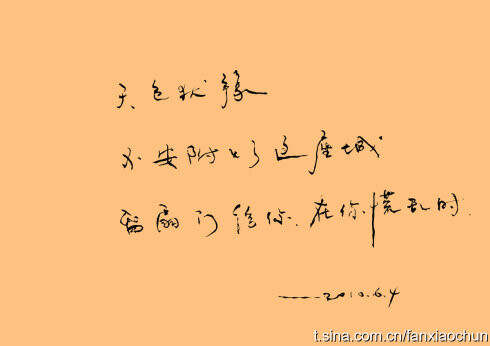 天色犹豫
不安附上了这座城
留扇门给你.在你慌乱时.
——2010.6.4
t.sina.com.cn/fanxiaochun